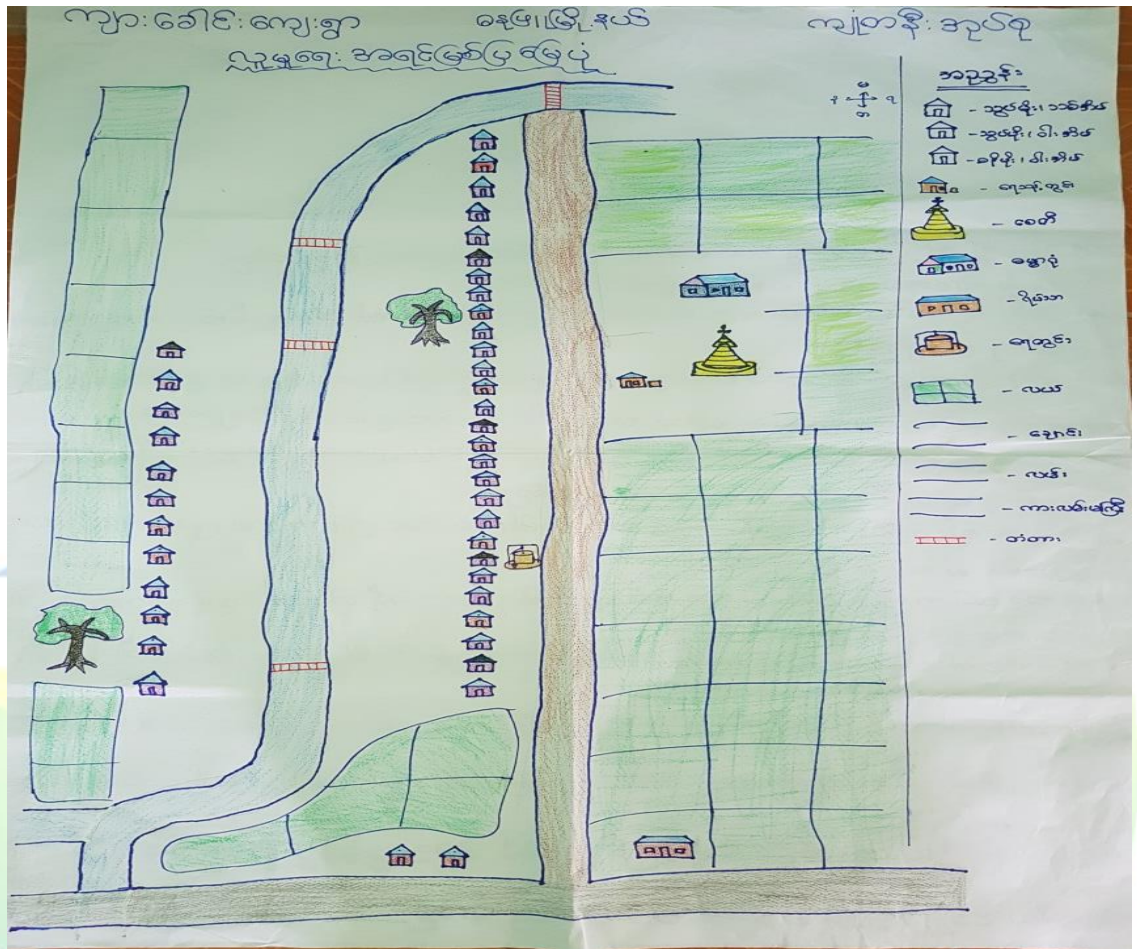 ကျားခေါင်းကျေးရွာ ဓနုဖြူမြို့နယ် ကျုံတနီးအုပ်စု
လူမှုရေးအရင်းမြစ်ပြမြေပုံ
အညွှန်း
- သွပ်မိုး၊ သစ်အိမ်
- သွပ်မိုး၊ ဝါးအိမ်
- ဓနိမိုး၊ ဝါးအိမ်
- ရေသန့်တွင်း
- စေတီ
- ဓမ္မာရုံ
- ရိပ်သာ
- ရေတွင်း
- လယ်
- ချောင်း
- လမ်း
- ကားလမ်းမကြီး
- တံတား